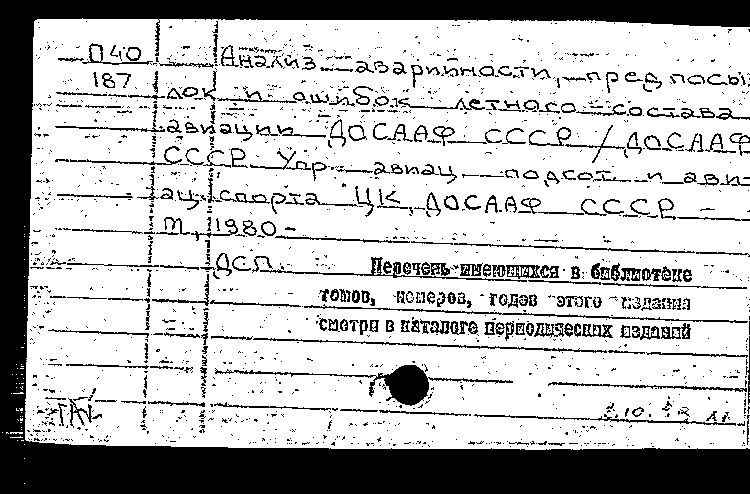 П40 Анализ аварийности, предпосы
187 лок и ошибок летного состава
авиации ДОСААФ СССР / ДОСААФ
СССР Упр. авиац. подгот и ави-
ац. спорта ЦК ДОСААФ СССР -
М, 1980-
ДСП.
Перечень имеющихся в библиотеке
томов, номеров, годов этого издания
смотри в каталоге периодических изданий